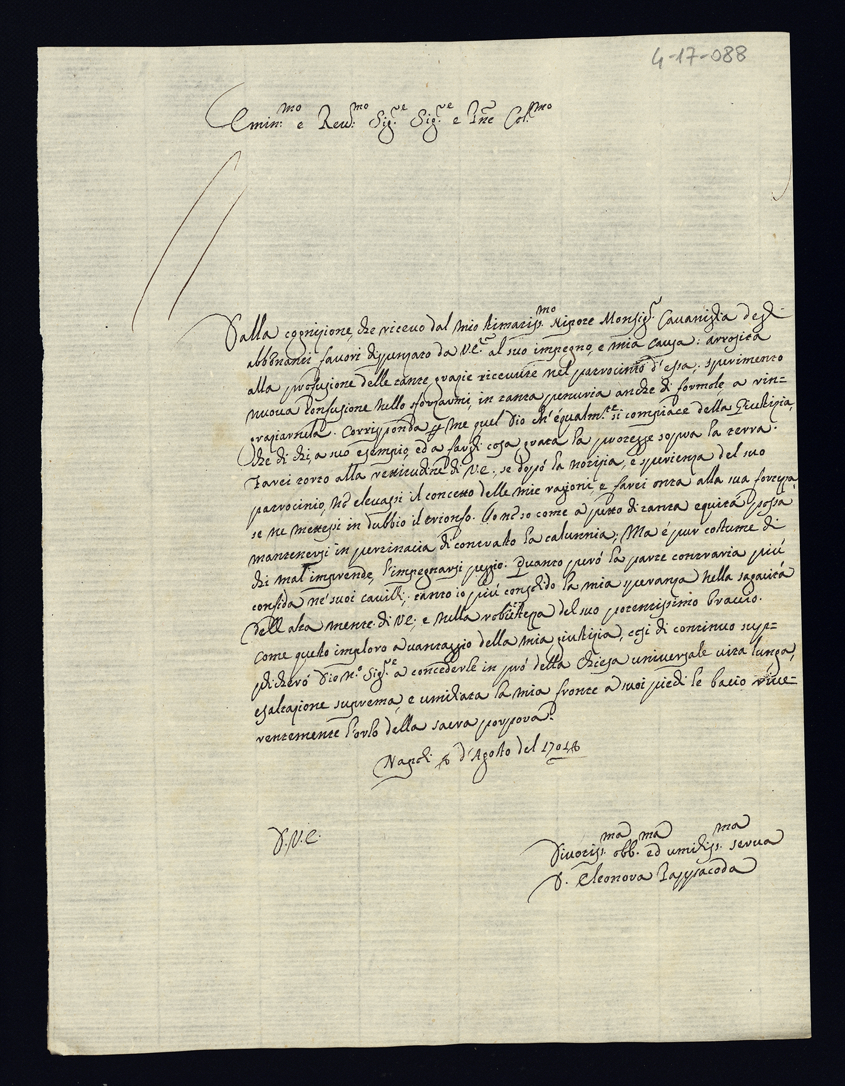 4-17-088
Emin:mo e Reu:mo Sig:re Sig:re e Pñe Col:mo
Dalla cognizione, che riceuo dal mio stimatiss:mo Nipote Monsig:r Cauaniglia degl'
abbondanti fauori dispensato da V.E: al suo impegno, e mia causa: arrossita
alla profusione delle tante grazie riceuute nel patrocinio d'essa; sperimento
nuoua confusione nello sforzarmi, in tanta penuria anche di formole, a rin=
graziarnela. Corrisponda per me quel Dio ch'egualm:te si compiace della Giustizia,
che di chi, a suo esempio, ed a fargli cosa grata la protegge sopra la terra.
Farei torto alla rettitudine di V.E: se dopo la notizia, e sperienza del suo
patrocinio, nõ eleuassi il concetto delle mie ragioni, e farei onta alla sua fortezza,
se ne mettessi in dubbio il trionfo. Io nõ so come a petto di tanta equità possa
mantenersi in pertinacia di contrasto la calunnia; Ma è pur costume di
chi mal'imprende, l'impegnarsi peggio. Quanto però la parte contraria più
confida ne' suoi cauilli; tanto io più consolido la mia speranza nella sagacità
dell'alta mente di V.E; e nella robustezza del suo potentissimo braccio.
Come questo imploro a uantaggio della mia giustizia, così di continuo sup=
plicherò Dio N:o Sig:re a concederle in prò della Chiesa uniuersale uita lunga,
esaltazione suprema, e umiliata la mia fronte a suoi piedi le bacio riue=
rentemente l'orlo della sacra porpora.
Napoli d'Agosto del 1704
D.V.E.
Diuotiss:ma obb:ma ed umiliss:ma serua
D. Eleonora Pappacoda